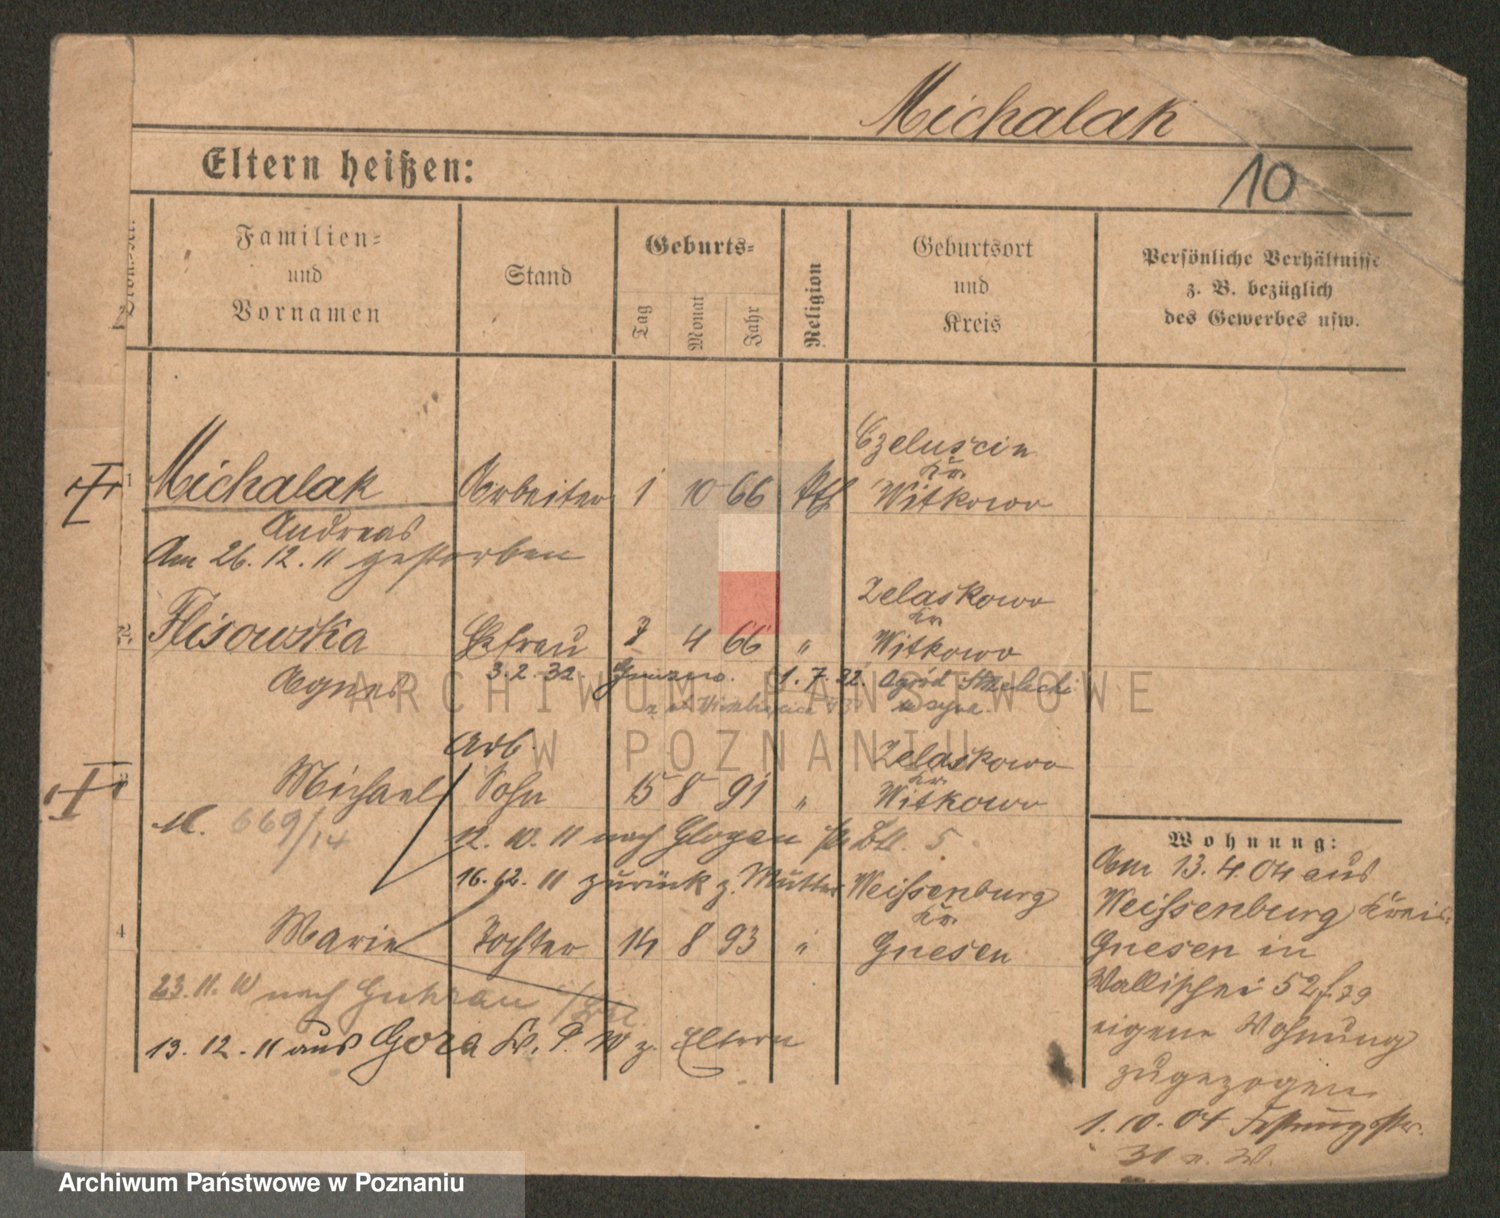 Michalak
10
Eltern heißen:
Familien- und Vornamen
Stand
Geburts-
Tag
Monat
Jahr
Religion
Geburtsort und Kreis
Persönliche Verhältnisse z. B. bezüglich des Gewerbes usw.
Czeluscin
Kr.
1 Michalak Arbeiter 1 10 66 kth Witkowo
Andreas
Am 26. 12. 11 gestorben
Zelaskowo
Kr.
2 Flisowska Ehefrau 7 4 66 " Witkowo
Agnes 3. 2. 32. 1. 7. 32.
Arb. Zelaskowo
Kr.
3 Michael Sohn 15 8 91 " Witkowo
M. 669/14
12. 10. 11 nach Glogau 5
16. 12. 11 zurück z. Mutter Weissenburg
Kr.
4 Marie Tochter 14 8 93 " Gnesen
23. 11. 10 nach Guhrau
13. 12. 11 aus Gora Kr. P. W z. Eltern
Wohnung:
Am 13. 4. 04 aus
Weissenburg Kreis
Gnesen in
Wallischei 52
eigene Wohnung
zugezogen
1. 10. 04
31
ARCHIWUM PAŃSTWOWE
W POZNANIU
Archiwum Państwowe w Poznaniu